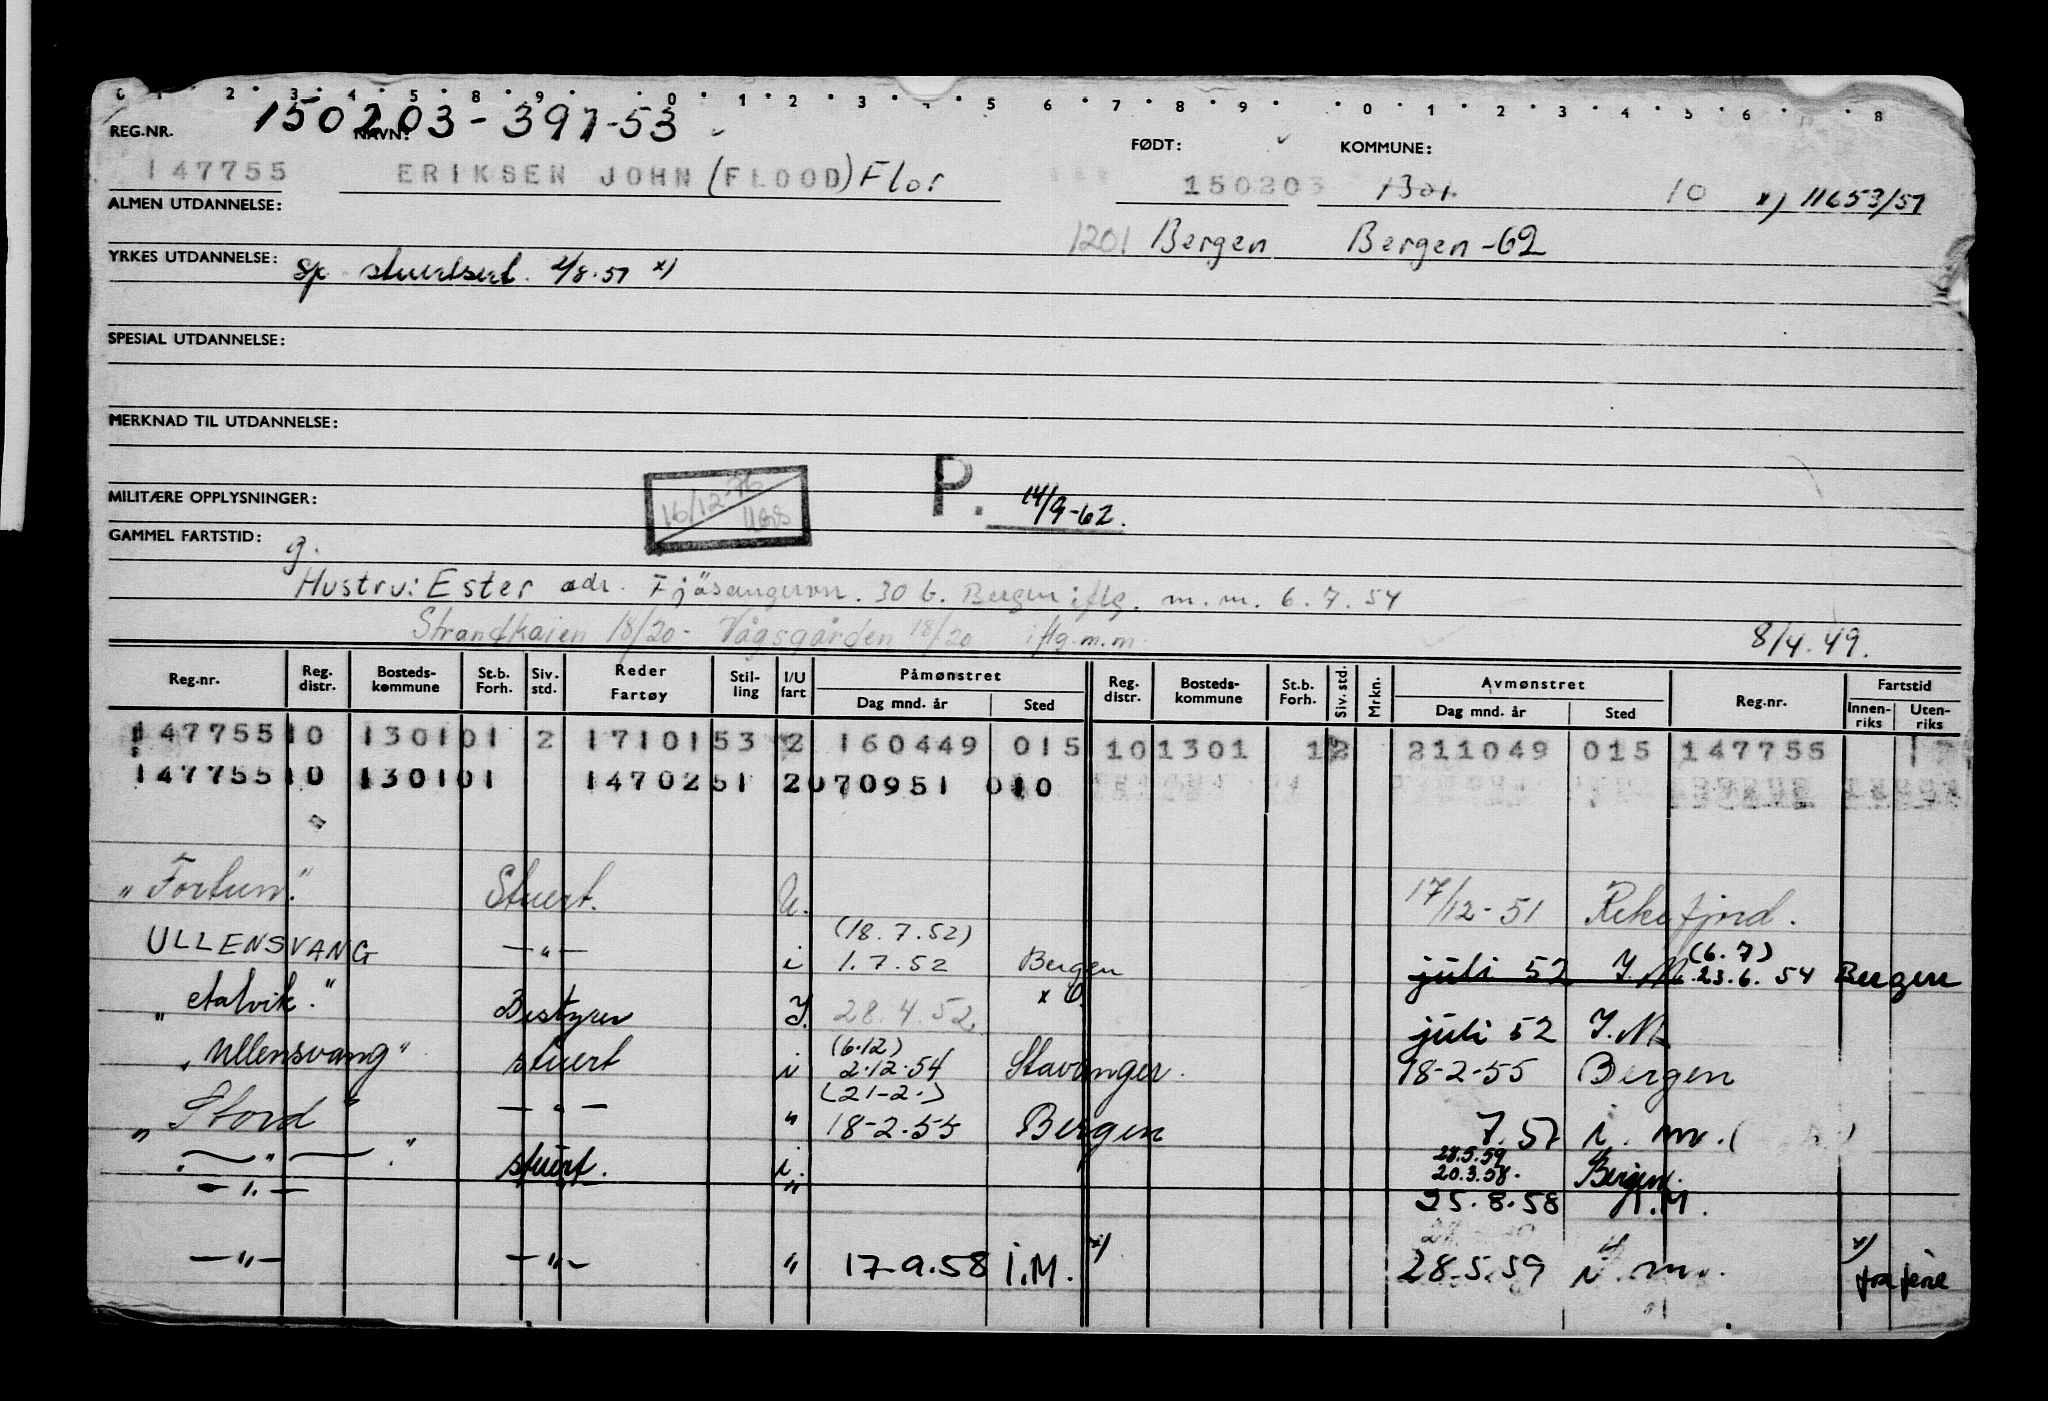 0 1 2 3 4 5 8 9 0 1 2 3 5 6 7 8 9 0 1 2 3 4 5 6 8
REG.NR. 150203-397-53 NAVN: FØDT: KOMMUNE:
147755 ERIKSEN JOHN (FLOOD) Flor 150203 1301. 10 x) 11653/57
ALMEN UTDANNELSE:
1201 Bergen Bergen -62
YRKES UTDANNELSE: Sp. stuertsert. 2/8.57 x)
SPESIAL UTDANNELSE:
MERKNAD TIL UTDANNELSE:
MILITÆRE OPPLYSNINGER: 16/12-76 P. 14/9-62.
GAMMEL FARTSTID: g.
Hustru: Ester adr. Fjösangervn. 30 b. Bergen iflg. m.m. 6.7.54
Strandkaien 18/20 - Vågsgården 18/20 iflg. m.m. 8/4.49.
Reg.nr. Reg. distr. Bosteds-kommune St.b. Forh. Siv. std. Reder Fartøy Stil-ling I/U fart Påmønstret Reg. distr. Bosteds-kommune St.b. Forh. Siv. std. Mrkn. Avmønstret Reg.nr. Fartstid
Dag mnd. år Sted Dag mnd. år Sted Innen-riks Uten-riks
147755 10 1301 01 2 1710153 2 160449 015 10 1301 1 2 211049 015 147755
147755 10 1301 01 1470251 2 070951 010
"Fortun." Stuert. U. 17/12-51 Rekefjord.
(18.7.52) (6.7)
ULLENSVANG —"— i 1.7.52 Bergen juli 52 I.M. 23.6.54 Bergen
"Alvik." Bestyrer I. 28.4.52 juli 52 I.M.
(6.12)
"Ullensvang" stuert i 2.12.54 Stavanger. 18-2-55 Bergen
(21-2.)
"Stord" —"— " 18-2.55 Bergen 7.57 i. m.
28.5.59
—"—." stuert. i. 20.3.58. Bergen.
—"— " 25.8.58 I.M.
—"— —"— " 17.9.58 i.M. x) 28.5.59 i. m. x) fra ferie